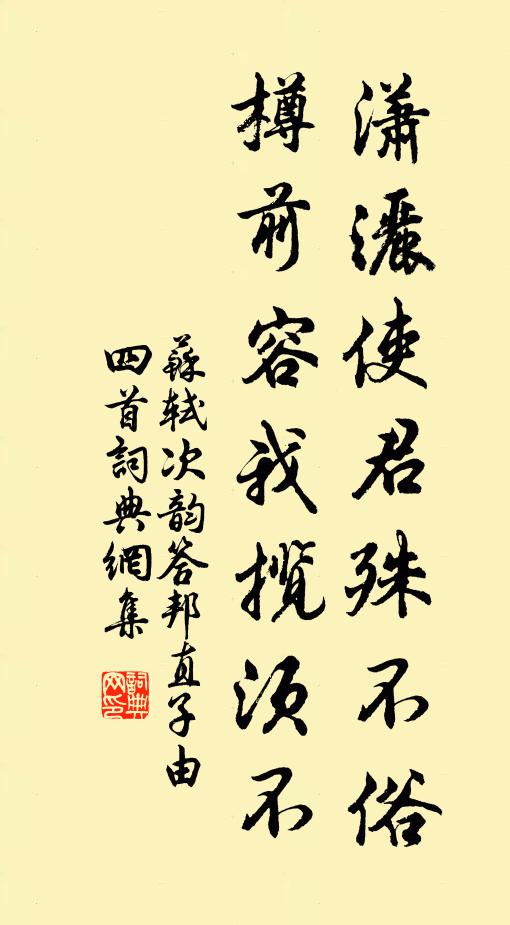 瀟灑使君殊不俗
樽前容我攬須不
蘇軾次韵答邦直子由
四首詞典網集
詞典
网印